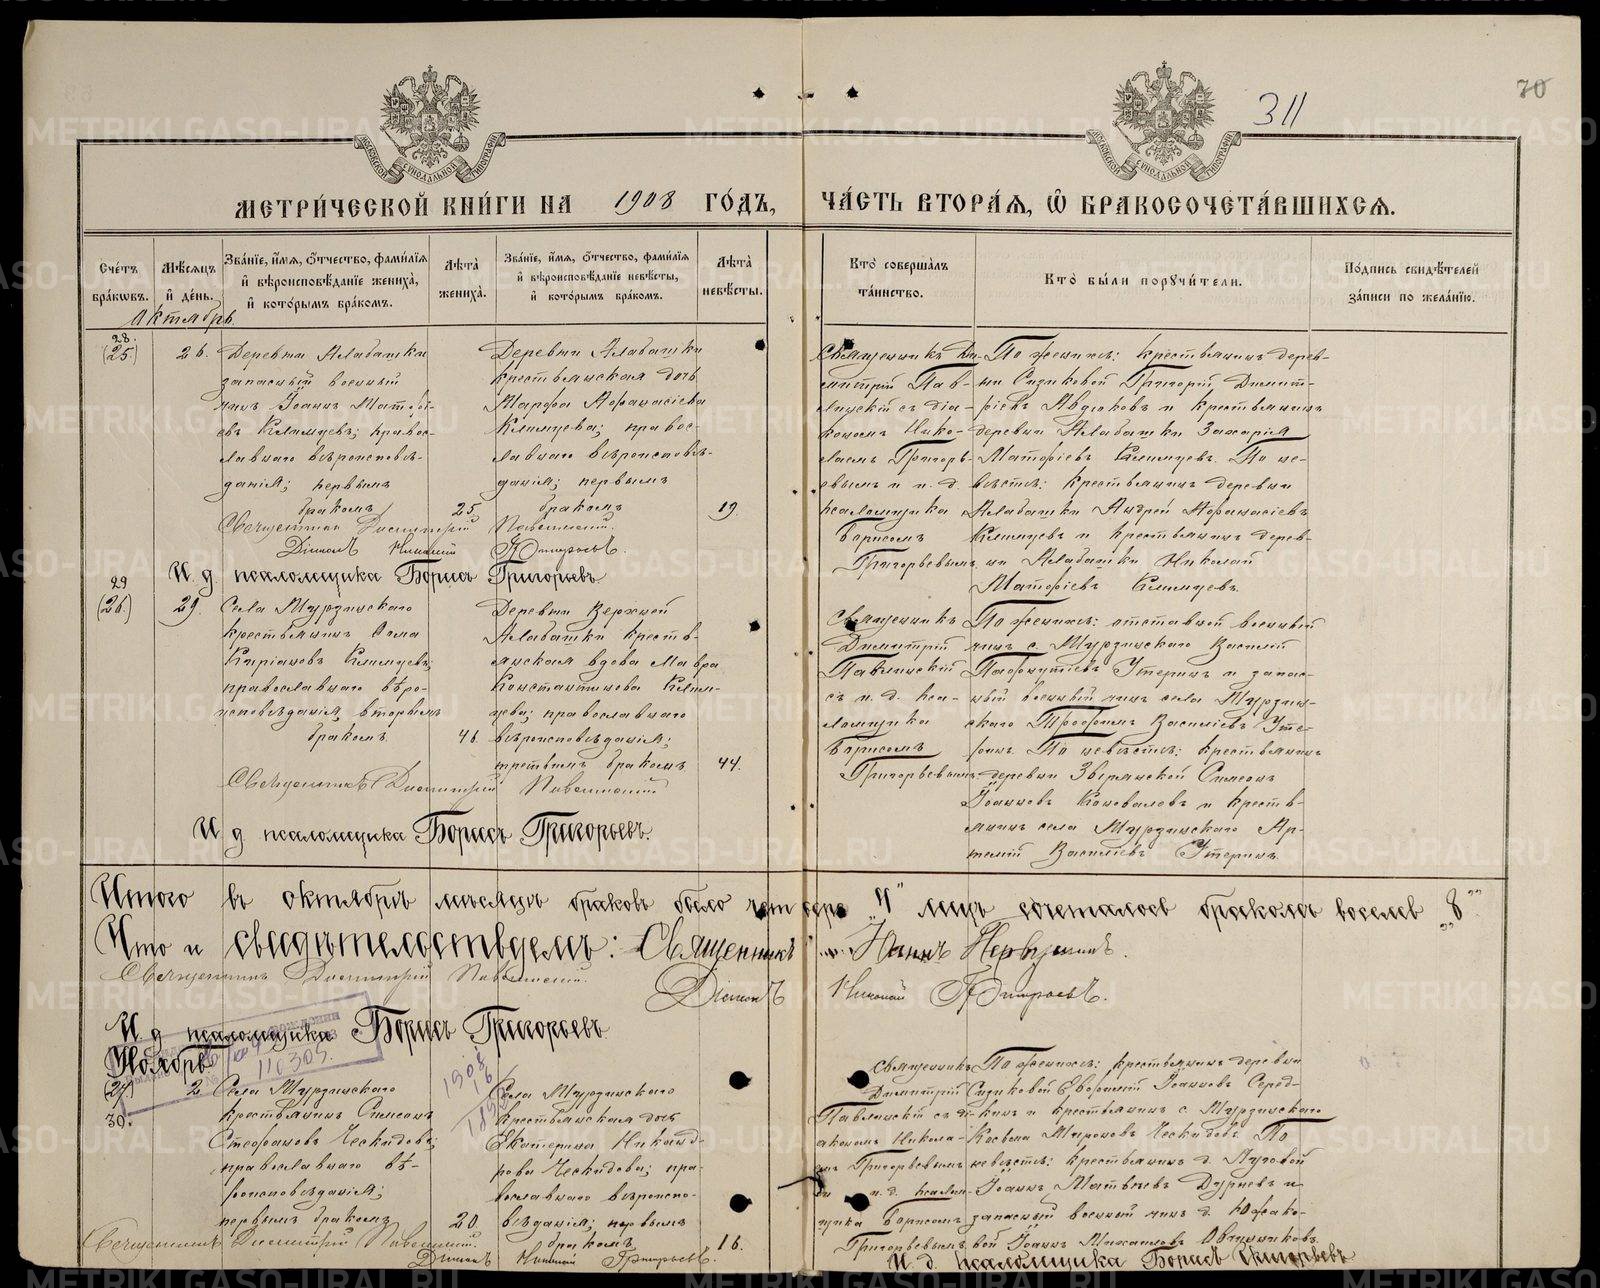 70
311
МЕТРИЧЕСКОЙ КНИГИ НА 1908 ГОДЪ, ЧАСТЬ ВТОРАЯ, Ѡ БРАКОСОЧЕТАВШИХСЯ.
Счетъ браковъ.
Мѣсяцъ и день.
Званіе, имя, отчество, фамилія и вѣроисповѣданіе жениха, и которымъ бракомъ.
Лѣта жениха.
Званіе, имя, отчество, фамилія и вѣроисповѣданіе невѣсты, и которымъ бракомъ.
Лѣта невѣсты.
Кто совершалъ таинство.
Кто были поручители.
Подпись свидѣтелей записи по желанію.
Октябрь
28.
(25.)
26.
Деревни Алабашки
запасный военный
чинъ Іоаннъ Матѳі-
евъ Климцевъ; правос-
лавнаго вѣроисповѣ-
данія; первымъ
бракомъ
25.
Деревни Алабашки
крестьянская дочь
Марфа Аѳанасіева
Климцева; правос-
лавнаго вѣроисповѣ-
данія; первымъ
бракомъ
19
Священникъ Ди-
митрій Пав-
линскій съ діа-
кономъ Нико-
лаемъ Григорь-
евымъ и и. д.
псаломщика
Борисомъ
Григорьевымъ
По женихѣ: крестьянинъ дерев-
ни Сизиковой Григорій Димит-
ріевъ Авдюковъ и крестьянинъ
деревни Алабашки Захарія
Матѳіевъ Климцевъ. По не-
вѣстѣ: крестьянинъ деревни
Алабашки Андрей Аѳанасіевъ
Климцевъ и крестьянинъ дерев-
ни Алабашки Николай
Матѳіевъ Климцевъ.
Священникъ Димитрій Павлинскій.
Діаконъ Николай Григорьевъ.
И. д. псаломщика Борисъ Григорьевъ.
29
(26.)
29.
Села Мурзинскаго
крестьянинъ Ѳома
Киріановъ Климцевъ;
православнаго вѣро-
исповѣданія, вторымъ
бракомъ
46.
Деревни Верхней
Алабашки кресть-
янская вдова Мавра
Константинова Клим-
цева; православнаго
вѣроисповѣданія;
третьимъ бракомъ
44.
Священникъ
Димитрій
Павлинскій
съ и. д. пса-
ломщика
Борисомъ
Григорьевымъ
По женихѣ: отставной военный
чинъ с. Мурзинскаго Василій
Пафнутіевъ Утеринъ и запас-
ный военный чинъ села Мурзин-
скаго Трофимъ Василіевъ Уте-
ринъ. По невѣстѣ: крестьянинъ
деревни Звѣрянской Симеонъ
Іоанновъ Коноваловъ и кресть-
янинъ села Мурзинскаго Ар-
темій Василіевъ Утеринъ.
Священникъ Димитрій Павлинскій
И д псаломщика Борисъ Григорьевъ.
Итого въ октябрѣ мѣсяцѣ браковъ было четыре „4“ лицъ сочеталось бракомъ восемь „8“.
Что и свидѣтельствуемъ: Священникъ
Священникъ Димитрій Павлинскій.
Діаконъ Николай Григорьевъ.
И. д псаломщика Борисъ Григорьевъ
110305.
Ноябрь
(27.)
30.
2
Села Мурзинскаго
крестьянинъ Симеонъ
Стефановъ Ческидовъ;
православнаго вѣ-
роисповѣданія;
первымъ бракомъ
20.
1908
16
Села Мурзинскаго
крестьянская дочь
Екатерина Никанд-
рова Ческидова; пра-
вославнаго вѣроиспо-
вѣданія; первымъ
бракомъ
16.
Священникъ
Димитрій
Павлинскій съ ді-
акономъ Никола-
емъ Григорьевымъ
и и. д. псалом-
щика Борисомъ
Григорьевымъ
По женихѣ: крестьянинъ деревни
Сизиковой Евфимій Іоанновъ Серед-
кинъ и крестьянинъ с. Мурзинскаго
Косьма Мироновъ Ческидовъ. По
невѣстѣ: крестьянинъ д. Луговой
Іоаннъ Матвеевъ Дурневъ и
запасный военный чинъ д. Южако-
вой Іоаннъ Михаиловъ Овчинниковъ.
Священникъ Димитрій Павлинскій.
Діаконъ Николай Григорьевъ.
И. д. псаломщика Борисъ Григорьевъ
METRIKI.GASO-URAL.RU